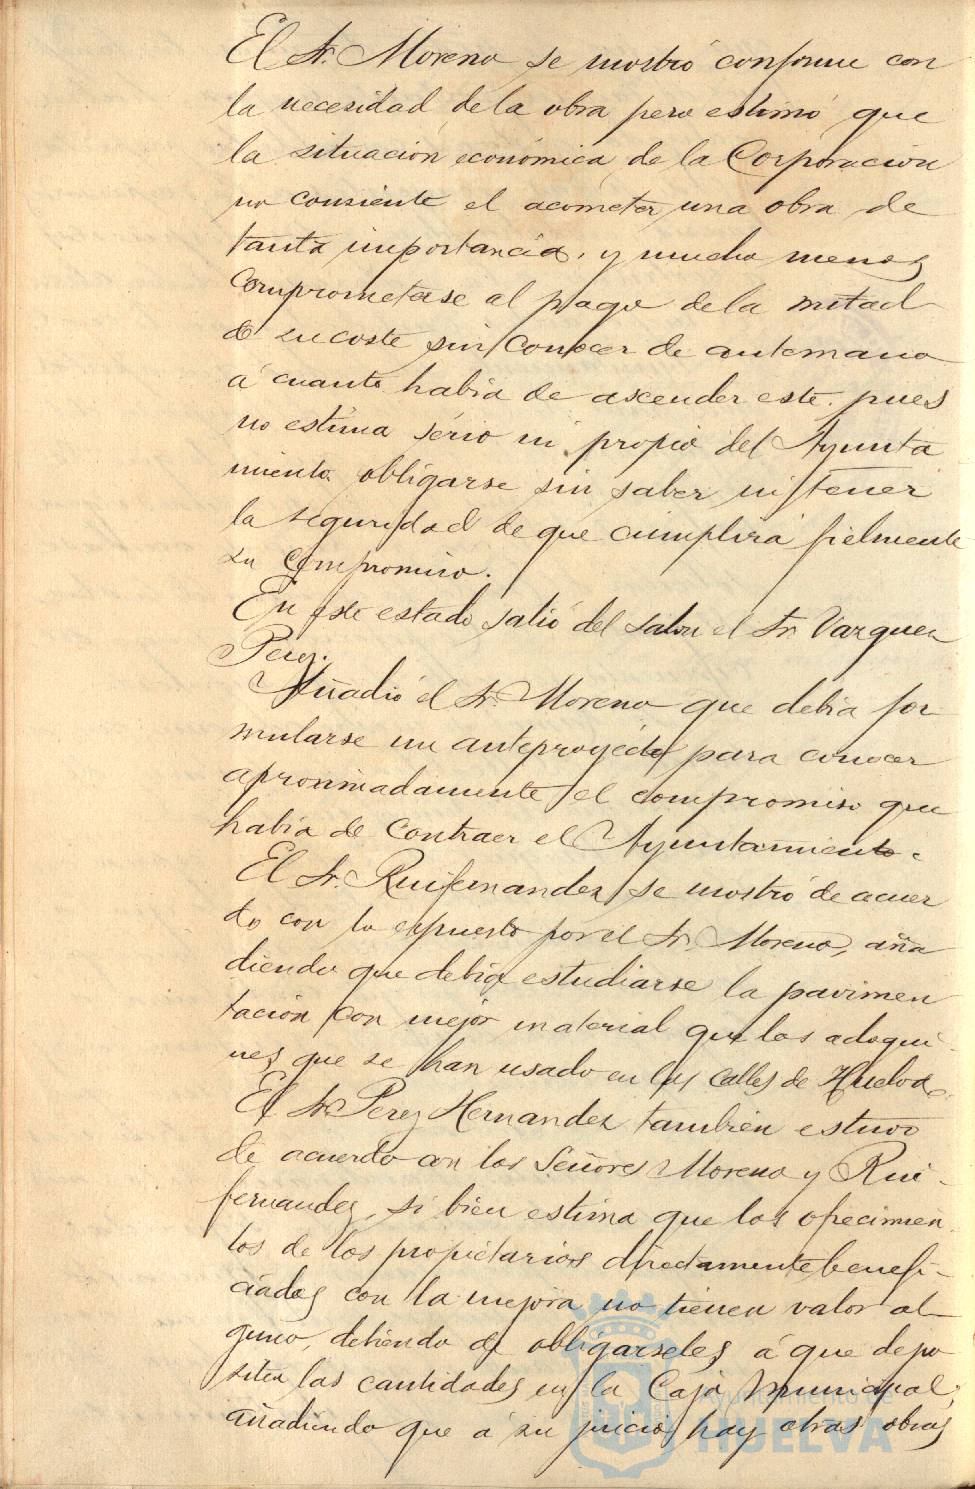 El Sr. Moreno se mostró conforme con
la necesidad de la obra pero estimó que
la situación económica de la Corporación
no consiente el acometer una obra de
tanta importancia, y mucho menos
comprometerse al pago de la mitad
de su coste sin conocer de antemano
á cuanto habia de ascender este. pues
no estima sério ni propio del Ayunta
miento obligarse sin saber ni tener
la seguridad de que cumplirá fielmente
su compromiso.
En este estado salió del salon el Sr. Vazquez
Perez.
Añadió el Sr. Moreno que debia for
mularse un anteproyecto para conocer
aproximadamente el compromiso que
habia de contraer el Ayuntamiento.
El Sr. Ruifernandez se mostró de acuer
do con lo expuesto por el Sr. Moreno, aña
diendo que debia estudiarse la pavimen
tación con mejor material que los adoqui
nes que se han usado en las calles de Huelva.
El Sr. Perez Hernandez tambien estuvo
de acuerdo con los Señores Moreno y Rui-
fernandez, si bien estima que los ofrecimien
tos de los propietarios directamente benefi-
ciados con la mejora no tienen valor al-
guno, debiendo de obligarseles á que depo
siten las cantidades en la Caja Municipal,
añadiendo que á su juicio hay otras obras
Ayuntamiento de
HUELVA